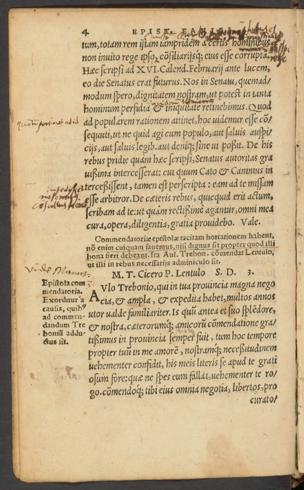 4 EPIST. FAMIL.
tum, totam rem istam iampridem à certis hominibus,
non inuito rege ipso, cōsiliarijsq; eius esse corrupta.
Hæc scripsi ad XVI. Calend. Februarij ante lucem,
eo die Senatus erat futurus. Nos in Senatu, quemad/
modum spero, dignitatem nostram, ut potest in tanta
hominum perfidia & iniquitate retinebimus. Quod
ad popularem rationem attinet, hoc uidemur esse cō/
sequuti, ut ne quid agi cum populo, aut saluis auspi/
cijs, aut saluis legib. aut deniq; sine ui possit. De his
rebus pridie quàm hæc scripsi, Senatus autoritas gra
uissima intercesserat: cui quum Cato & Caninius in
tercessissent, tamen est perscripta: eam ad te missam
esse arbitror. De cæteris rebus, quicquid erit actum,
scribam ad te: ut quàm rectissimè agantur, omni mea
cura, opera, diligentia, gratia prouidebo. Vale.
Commendatoriæ epistolæ tacitam hortationem habent,
nō enim cuiquam fauemus, nisi dignus sit propter quod illi
bona fieri debeant. fra Aul. Trebon. cōmendat Lentulo,
ut illi in rebus necessarijs adminiculo sit.
M. T. Cicero P. Lentulo S. D. 3.
Epistola com
mendatoria.
Exorditur à
causis, quib⁹
ad commen-
dandum Tre
bonii addu-
ctus sit.
AVlo Trebonio, qui in tua prouincia magna nego
cia, & ampla, & expedita habet, multos annos
utor ualde familiariter. Is quū antea et suo splēdore,
& nostra, cæterorumq; amicorū cōmendatione gra/
tissimus in prouincia semper fuit, tum hoc tempore
propter tuū in me amorē, nostramq; necessitudinem
uehementer confidit, his meis literis se apud te grati
osum fore: quæ ne spes eum fallat, uehementer te ro/
go. cōmendoq; tibi eius omnia negotia, libertos, pro
curato/